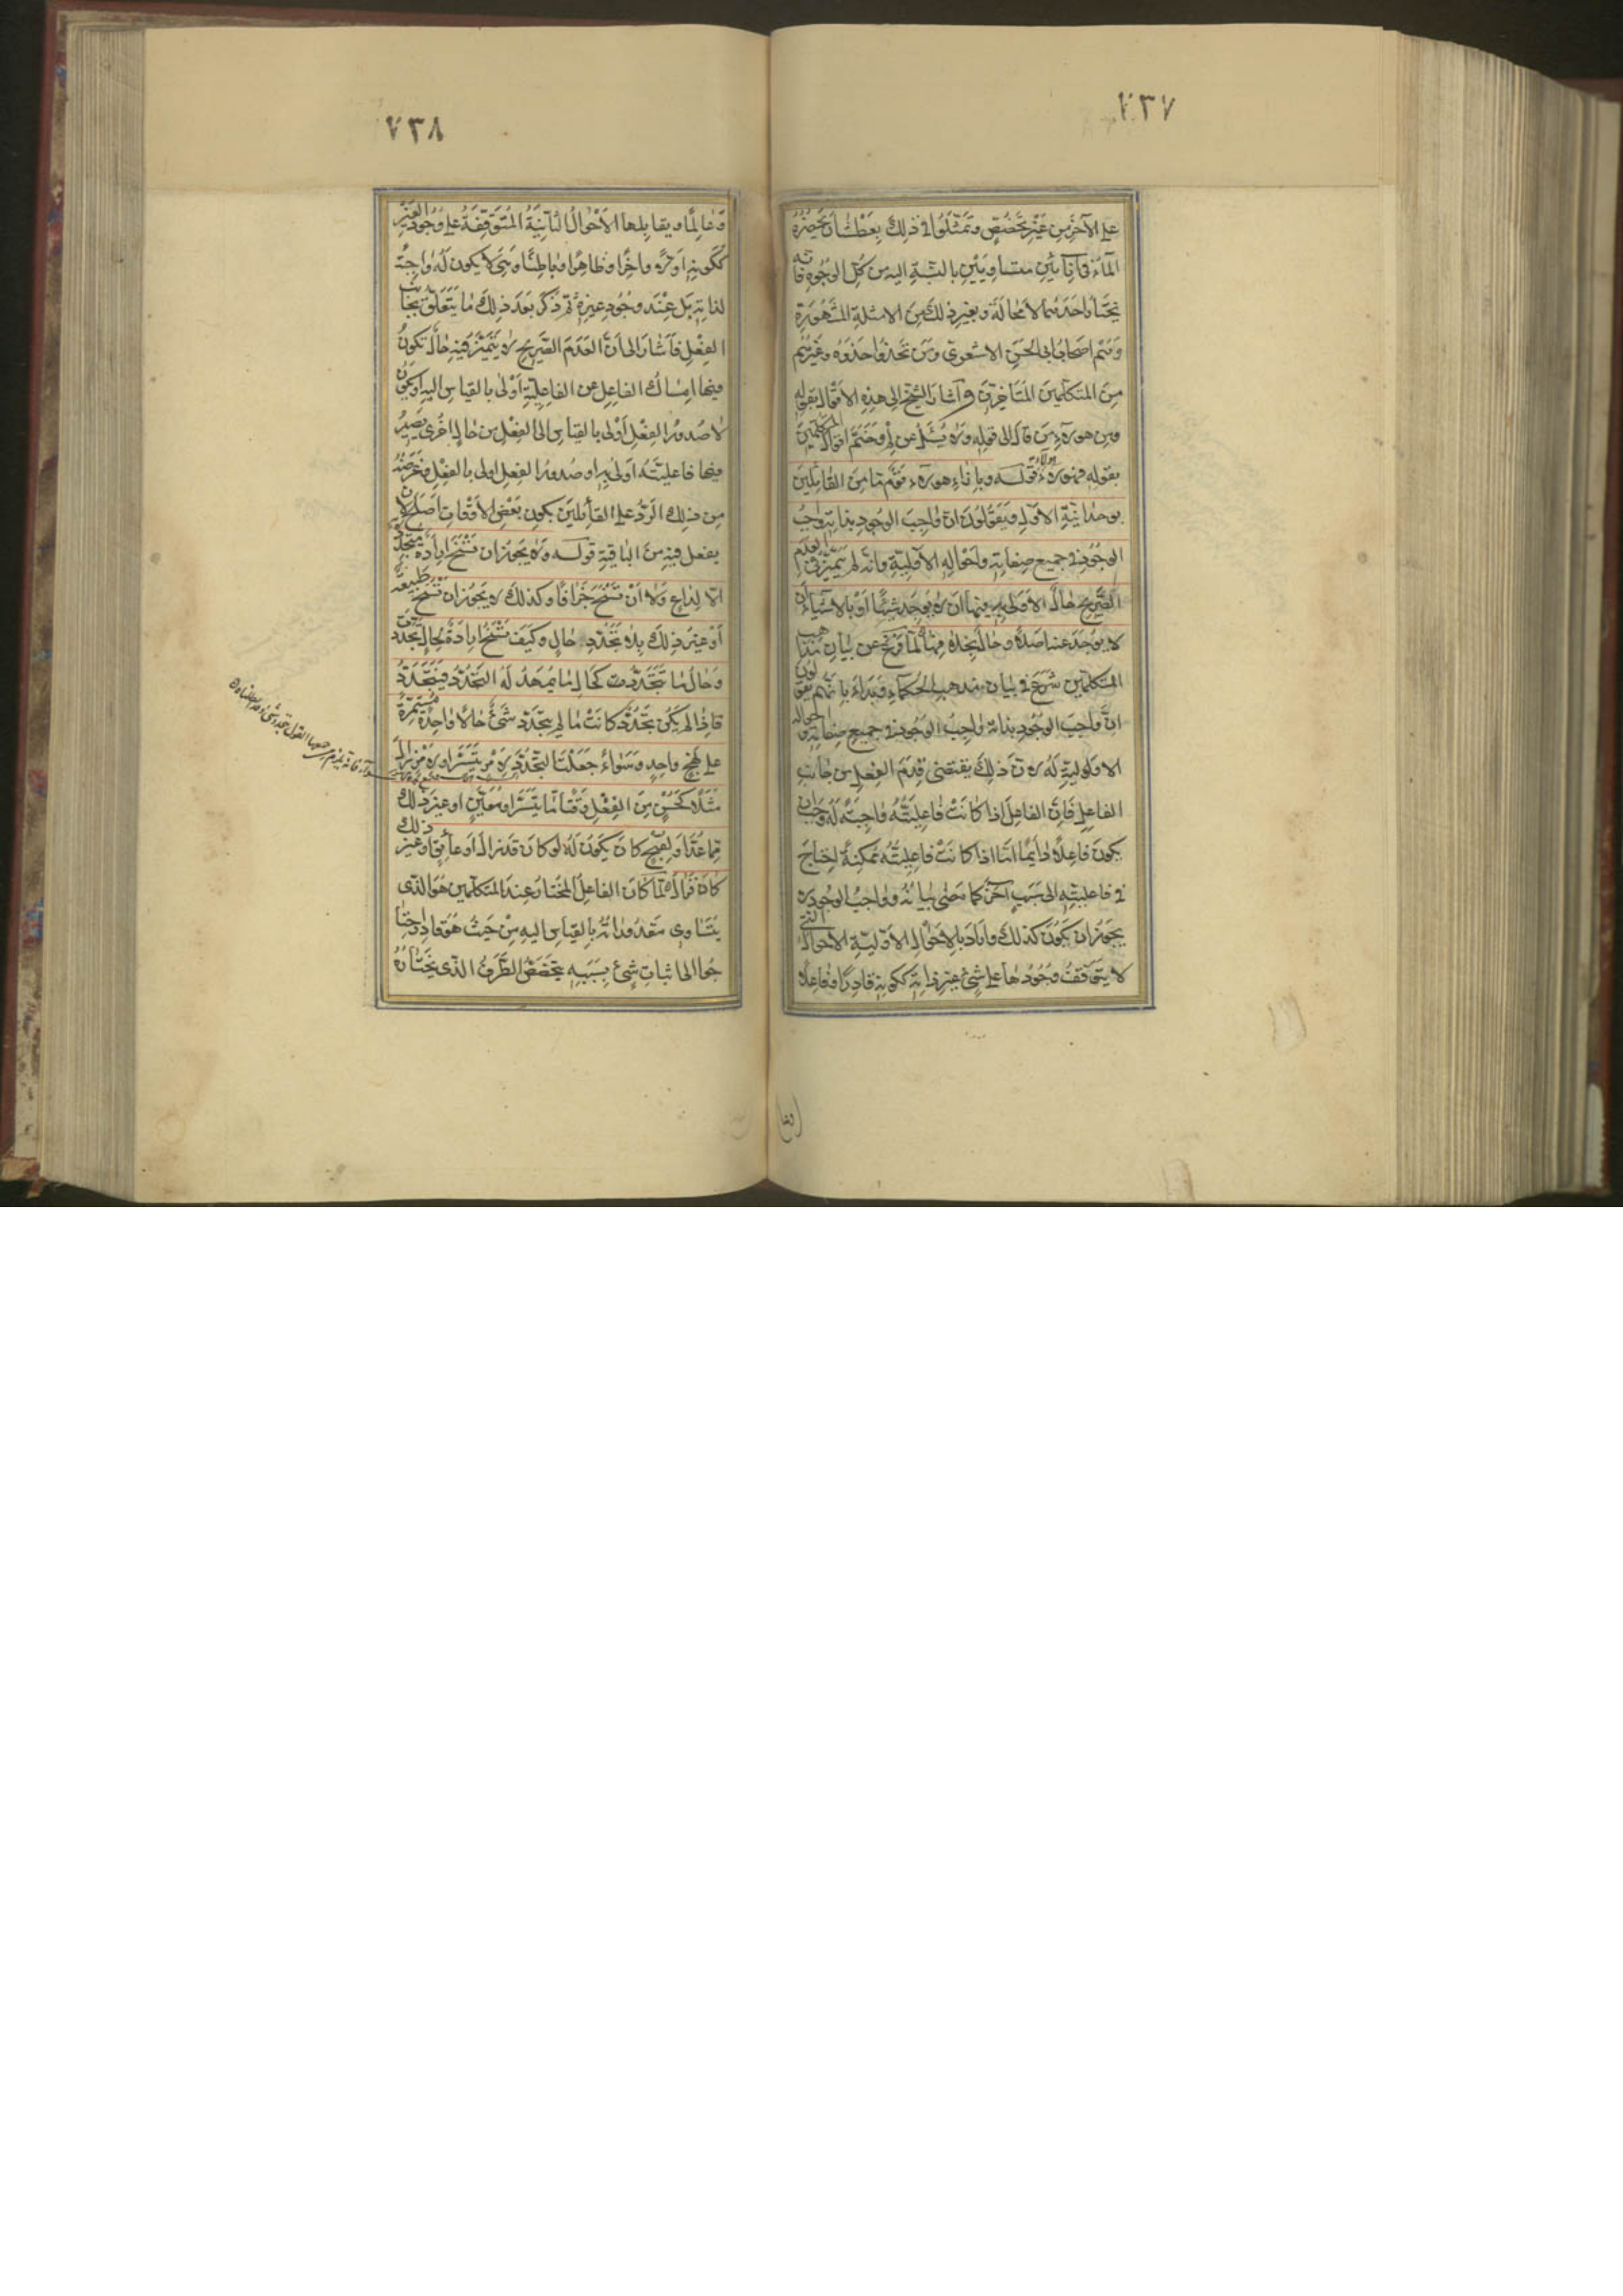 ٧٣٧
على الآخر من غير تخصّص وتمثّلوا في ذلك بعطشان يحضره
الماء في انائين متساويين بالنسبة اليه من كل الوجوه فانه
يختار احدهما لا محالة وبغير ذلك من الامثلة المشهورة
وهم اصحاب ابى الحسن الاشعرى ومن يحذوا حذوه وغيرهم
من المتكلمين المتأخرين واشار الشيخ الى هذه الاقوال بقوله
ومن هؤلاء من قال الى قوله ولا يسئل عن لم وختم اقوال المتكلمين
بقوله فهؤلاء هؤلاء قوله وبازاء هؤلاء قوم من القائلين
بوحدانية الاول ويقولون ان واجب الوجود بذاته واجب
الوجود في جميع صفاته واحواله الاولية وانه لم يتميز في العدم
الصريح حال الاولى به فيها ان لا يوجد شيئا او بالاشياء ان
لا يوجد عنه اصلا وحال بخلافها لما فرغ عن بيان مذاهب
المتكلمين شرع في بيان مذهب الحكماء فبدأ بانهم يقولون
ان واجب الوجود بذاته واجب الوجود في جميع صفاته واحواله
الاولية له لان ذلك يقتضى قدم الفعل من جانب
الفاعل فان الفاعل اذا كانت فاعليته واجبة له وجب ان
يكون فاعلا دايما اما اذا كانت فاعليته ممكنة احتاج
في فاعليته الى سبب آخر كما مضى بيانه وواجب الوجود لا
يجوز ان يكون كذلك واراد بالاحوال الاولية الاحوال التى
لا يتوقف وجودها على شئ غير ذاته ككونه قادرا وفاعلا
٧٣٨
وعالما ويقابلها الاحوال الثانية المتوقفة على وجود الغير
ككونه اولا وآخرا وظاهرا وباطنا وهى لا يكون له واجبة
لذاته بل عند وجود غيره ثم ذكر بعد ذلك ما يتعلق بجانب
الفعل فاشار الى ان العدم الصريح لا يتميز فيه حال تكون
فيها امساك الفاعل عن الفاعلية اولى بالقياس اليه او يكون
لا صدور الفعل اولى بالقياس الى الفعل من حال اخرى يصير
فيها فاعليته اولى به او صدور الفعل اولى بالفعل وغرضه
من ذلك الرد على القائلين بكون بعض الاوقات اصلح لان
يفعل فيه من الباقية قوله ولا يجوز ان تسنح ارادة متجددة
الا لداع ولا ان تسنح جزافا وكذلك لا يجوز ان تسنح طبيعة
او غير ذلك بلا تجدد حال وكيف تسنح ارادة لحال تجددت
وحال ما تجددت كحال ما يمهد له التجدد فيتجدد
فاذا لم يكن تجدد كانت ما لم يتجدد شئ حالا واحدة مستمرة
على نهج واحد وسواء جعلت التجدد لامر تيسر او لامر زال
مثلا كحسن من الفعل وقتا ما تيسر او معين او غير ذلك
مما عدّ او لقبح كان يكون له لو كان قد زال او عائق او غير ذلك
كان فزال لما كان الفاعل المختار عند المتكلمين هو الذى
يتساوى مقدوراته بالقياس اليه من حيث هو قادر احتا
جوا الى اثبات شئ بسببه يتخصص الطرف الذى يختاره